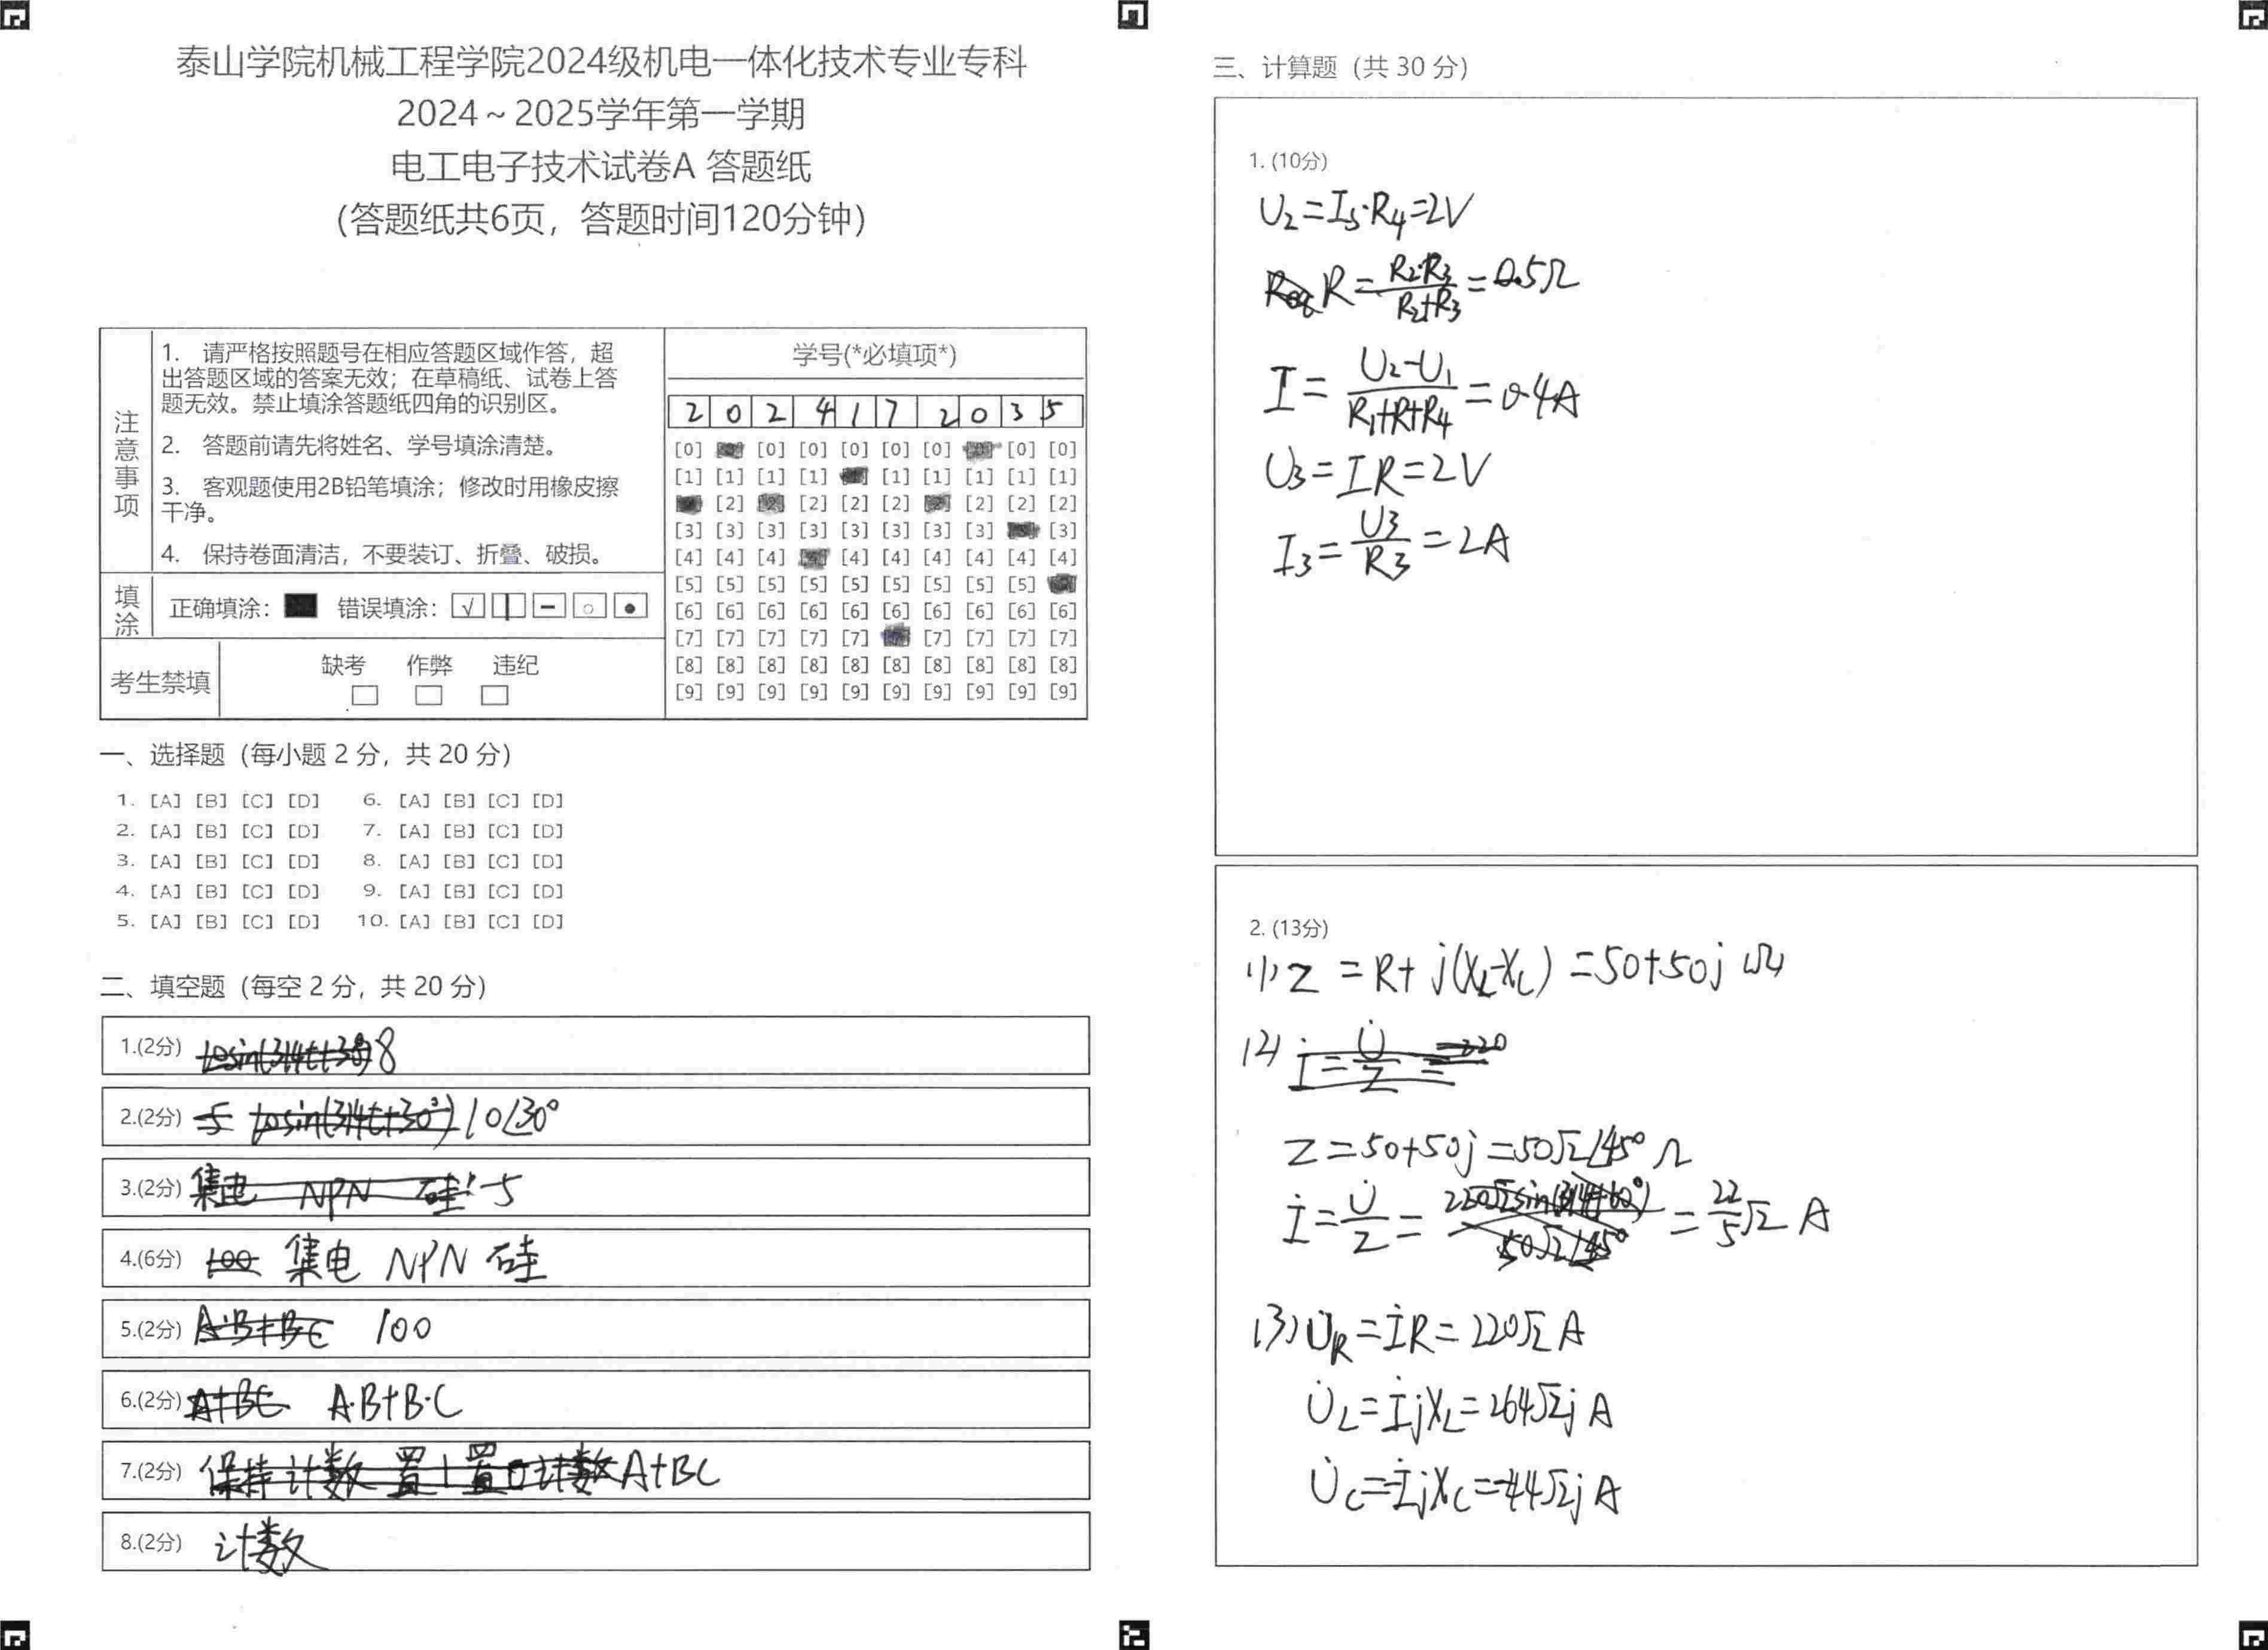 泰山学院机械工程学院2024级机电一体化技术专业专科
2024～2025学年第一学期
电工电子技术试卷A 答题纸
（答题纸共6页，答题时间120分钟）
注意事项
1. 请严格按照题号在相应答题区域作答，超
出答题区域的答案无效；在草稿纸、试卷上答
题无效。禁止填涂答题纸四角的识别区。
2. 答题前请先将姓名、学号填涂清楚。
3. 客观题使用2B铅笔填涂；修改时用橡皮擦
干净。
4. 保持卷面清洁，不要装订、折叠、破损。
填涂
正确填涂： 错误填涂：
考生禁填
缺考 作弊 违纪
学号(*必填项*)
2 0 2 4 1 7 2 0 3 5
[0] [0] [0] [0] [0] [0] [0] [0]
[1] [1] [1] [1] [1] [1] [1] [1] [1]
[2] [2] [2] [2] [2] [2] [2]
[3] [3] [3] [3] [3] [3] [3] [3] [3]
[4] [4] [4] [4] [4] [4] [4] [4] [4]
[5] [5] [5] [5] [5] [5] [5] [5] [5]
[6] [6] [6] [6] [6] [6] [6] [6] [6] [6]
[7] [7] [7] [7] [7] [7] [7] [7] [7]
[8] [8] [8] [8] [8] [8] [8] [8] [8] [8]
[9] [9] [9] [9] [9] [9] [9] [9] [9] [9]
一、选择题（每小题 2 分，共 20 分）
1. [A] [B] [C] [D] 6. [A] [B] [C] [D]
2. [A] [B] [C] [D] 7. [A] [B] [C] [D]
3. [A] [B] [C] [D] 8. [A] [B] [C] [D]
4. [A] [B] [C] [D] 9. [A] [B] [C] [D]
5. [A] [B] [C] [D] 10. [A] [B] [C] [D]
二、填空题（每空 2 分，共 20 分）
1.(2分) 10sin(314t+30°) 8
2.(2分) 5 10sin(314t+30°) 10∠30°
3.(2分) 集电 NPN 硅 -5
4.(6分) 100 集电 NPN 硅
5.(2分) A·B+BC 100
6.(2分) A+BC A·B+B·C
7.(2分) 保持计数 置1置0计数 A+BC
8.(2分) 计数
三、计算题（共 30 分）
1. (10分)
U₂=I₅·R₄=2V
Req R=R₂·R₃/(R₂+R₃)=0.5Ω
I=(U₂-U₁)/(R₁+R+R₄)=0.4A
U₃=IR=2V
I₃=U₃/R₃=2A
2. (13分)
(1) Z=R+j(X_L-X_C)=50+50j Ω
(2) İ=U̇/Z=220
Z=50+50j=50√2∠45° Ω
İ=U̇/Z=220√2sin(314t+60°)/50√2∠45°=22/5√2 A
(3) U̇_R=İR=220√2 A
U̇_L=İjX_L=264√2j A
U̇_C=-İjX_C=-44√2j A